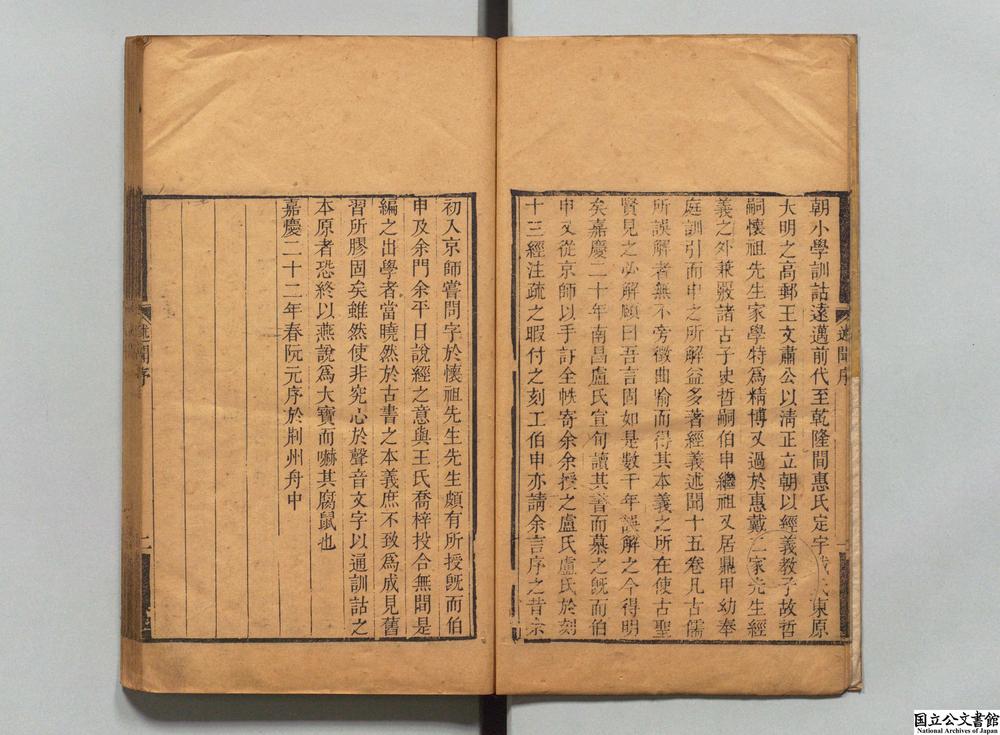 朝小學訓詁遠邁前代至乾隆間惠氏定宇戴氏東原
大明之高郵王文肅公以清正立朝以經義教子故哲
嗣懷祖先生家學特爲精博又過於惠戴二家先生經
義之外兼覈諸古子史哲嗣伯申繼祖又居鼎甲幼奉
庭訓引而申之所解益多著經義述聞十五卷凡古儒
所誤解者無不旁徵曲喻而得其本義之所在使古聖
賢見之必解頤曰吾言固如是數千年誤解之今得明
矣嘉慶二十年南昌盧氏宣旬讀其書而慕之旣而伯
申又從京師以手訂全帙寄余余授之盧氏盧氏於刻
十三經注疏之暇付之刻工伯申亦請余言序之昔余
述聞序
一
初入京師嘗問字於懷祖先生先生頗有所授旣而伯
申及余門余平日說經之意與王氏喬梓投合無間是
編之出學者當曉然於古書之本義庶不致爲成見舊
習所膠固矣雖然使非究心於聲音文字以通訓詁之
本原者恐終以燕說爲大寶而嚇其腐鼠也
嘉慶二十二年春阮元序於荆州舟中
述聞序
二
国立公文書館
National Archives of Japan